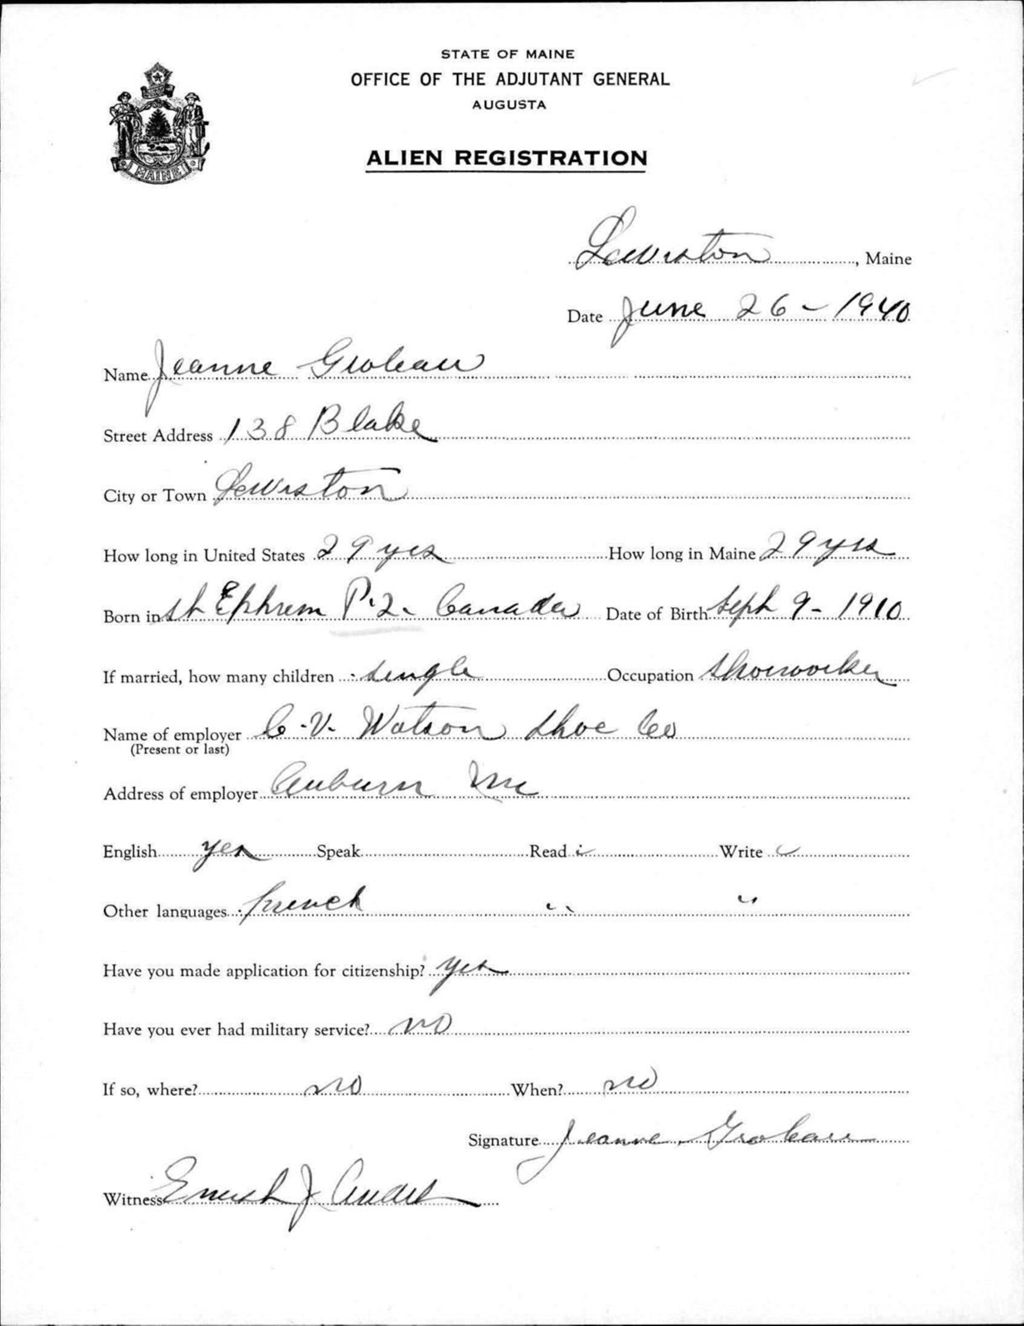 STATE OF MAINE
OFFICE OF THE ADJUTANT GENERAL
AUGUSTA
ALIEN REGISTRATION
MAINE
Lewiston, Maine
Date June 26 - 1940
Name Jeanne Groleau
Street Address 138 Blake
City or Town Lewiston
How long in United States 29 yrs How long in Maine 29 yrs
Born in St Ephrem P.Q. Canada Date of Birth Sept 9 - 1910
If married, how many children single Occupation Shoeworker
Name of employer C. V. Watson Shoe Co
(Present or last)
Address of employer Auburn Me
English yes Speak Read Write
Other languages french " "
Have you made application for citizenship? yes
Have you ever had military service? no
If so, where? no When? no
Signature Jeanne Groleau
Witness J